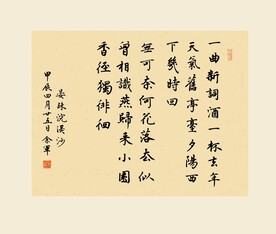 一曲新詞酒一杯去年
天氣舊亭臺夕陽西
下幾時回
無可奈何花落去似
曾相識燕歸来小園
香徑獨徘徊
晏殊浣溪沙
甲辰四月廿五日余軍